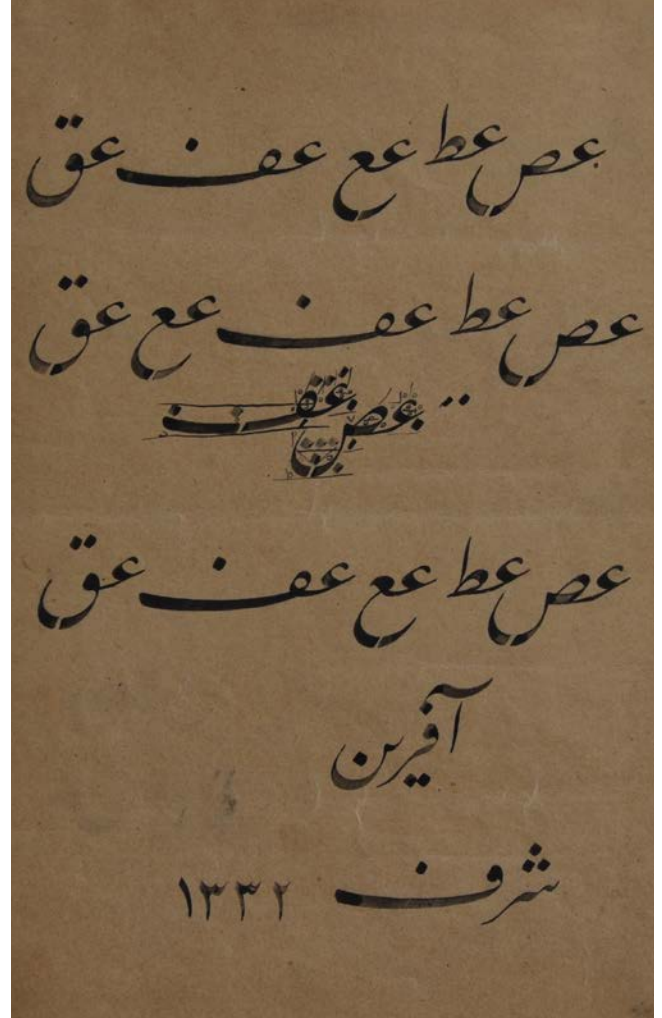 عص عط عع عف عق
عص عط عف عع عق
عص عف
عص عط عع عف عق
آفرین
شرف ١٣٣٢